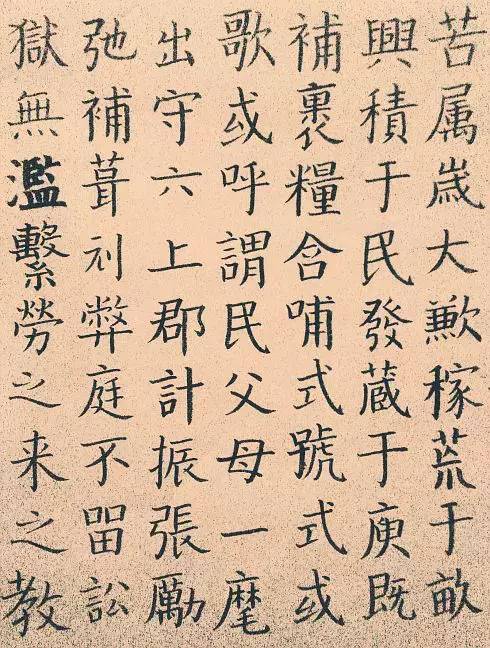 苦属歳大歉稼荒于畝
興積于民發蔵于庾既
補裹糧含哺式號式或
歌或呼謂民父母一麾
出守六上郡計振張勵
弛補葺刓弊庭不留訟
獄無濫繫勞之来之教